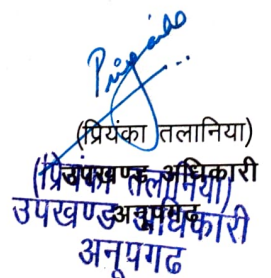 Priyanka
(प्रियंका तलानिया)
उपखण्ड अधिकारी
अनूपगढ
(प्रियंका तलानिया)
उपखण्ड अधिकारी
अनूपगढ